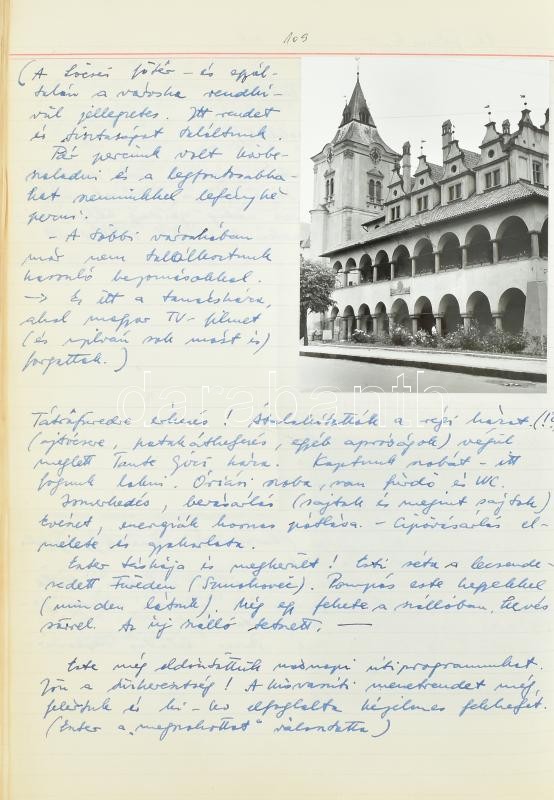 109
(A Lőcsei főtér – és egyál-
talán a városka rendkí-
vül jellegzetes. Itt rendet
és tisztaságot találtunk.
Pár percünk volt körbe-
szaladni és a legfontosabba-
kat nemünkkel lefényké-
pezni.
– A többi városkában
már nem találkoztunk
hasonló benyomásokkal.
–> Ez itt a tanácsháza,
ahol magyar TV-filmet
(és nyilván sok mást is)
forgattak.)
darabanth
Tátrafüredre érkezés! Átalakították a régi házat. (!
(ajtócsere, patakáthelyezés, egyéb apróságok) végül
meglett Tante Gizi háza. Kaptunk szobát – itt
fogunk lakni. Óriási szoba, van fürdő és WC.
Ismerkedés, bevásárlás (sajtok és megint sajtok)
Evészet, energiák hasznos pótlása. – Cipővásárlás el-
mélete és gyakorlata.
Eszter táskája is megkerült! Esti séta a lecsende-
sedett Füreden (Smokovec). Pompás este hegyekkel
(minden látszik). Még egy fekete a szállóban, kevés
sörrel. Az új szálló tetszett. —
Este még eldöntöttük másnapi útiprogramunkat.
Jön a türkeresztség! A kisvasúti menetrendet még
felírtuk és ki-ki elfoglalta kényelmes fekhelyét.
(Eszter a „megszokottat" választotta)